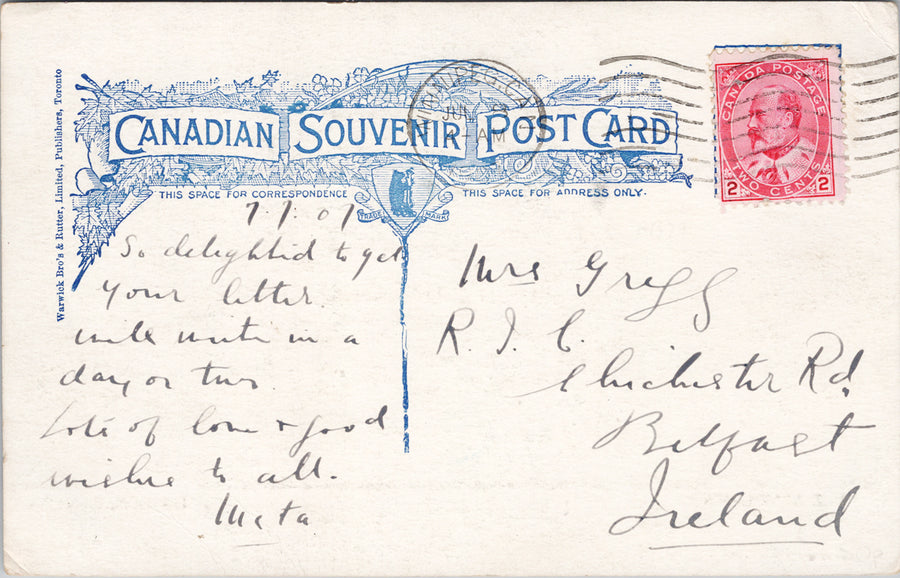 Warwick Bro's & Rutter, Limited, Publishers, Toronto
CANADIAN SOUVENIR POST CARD
THIS SPACE FOR CORRESPONDENCE
THIS SPACE FOR ADDRESS ONLY.
TRADE MARK
JUL
AM
CANADA POSTAGE
2 TWO CENTS 2
7.7.07
So delighted to get
your letter.
will write in a
day or two.
Lots of love & good
wishes to all.
Meta
Mrs Gregg
R. I. C.
Chichester Rd.
Belfast
Ireland